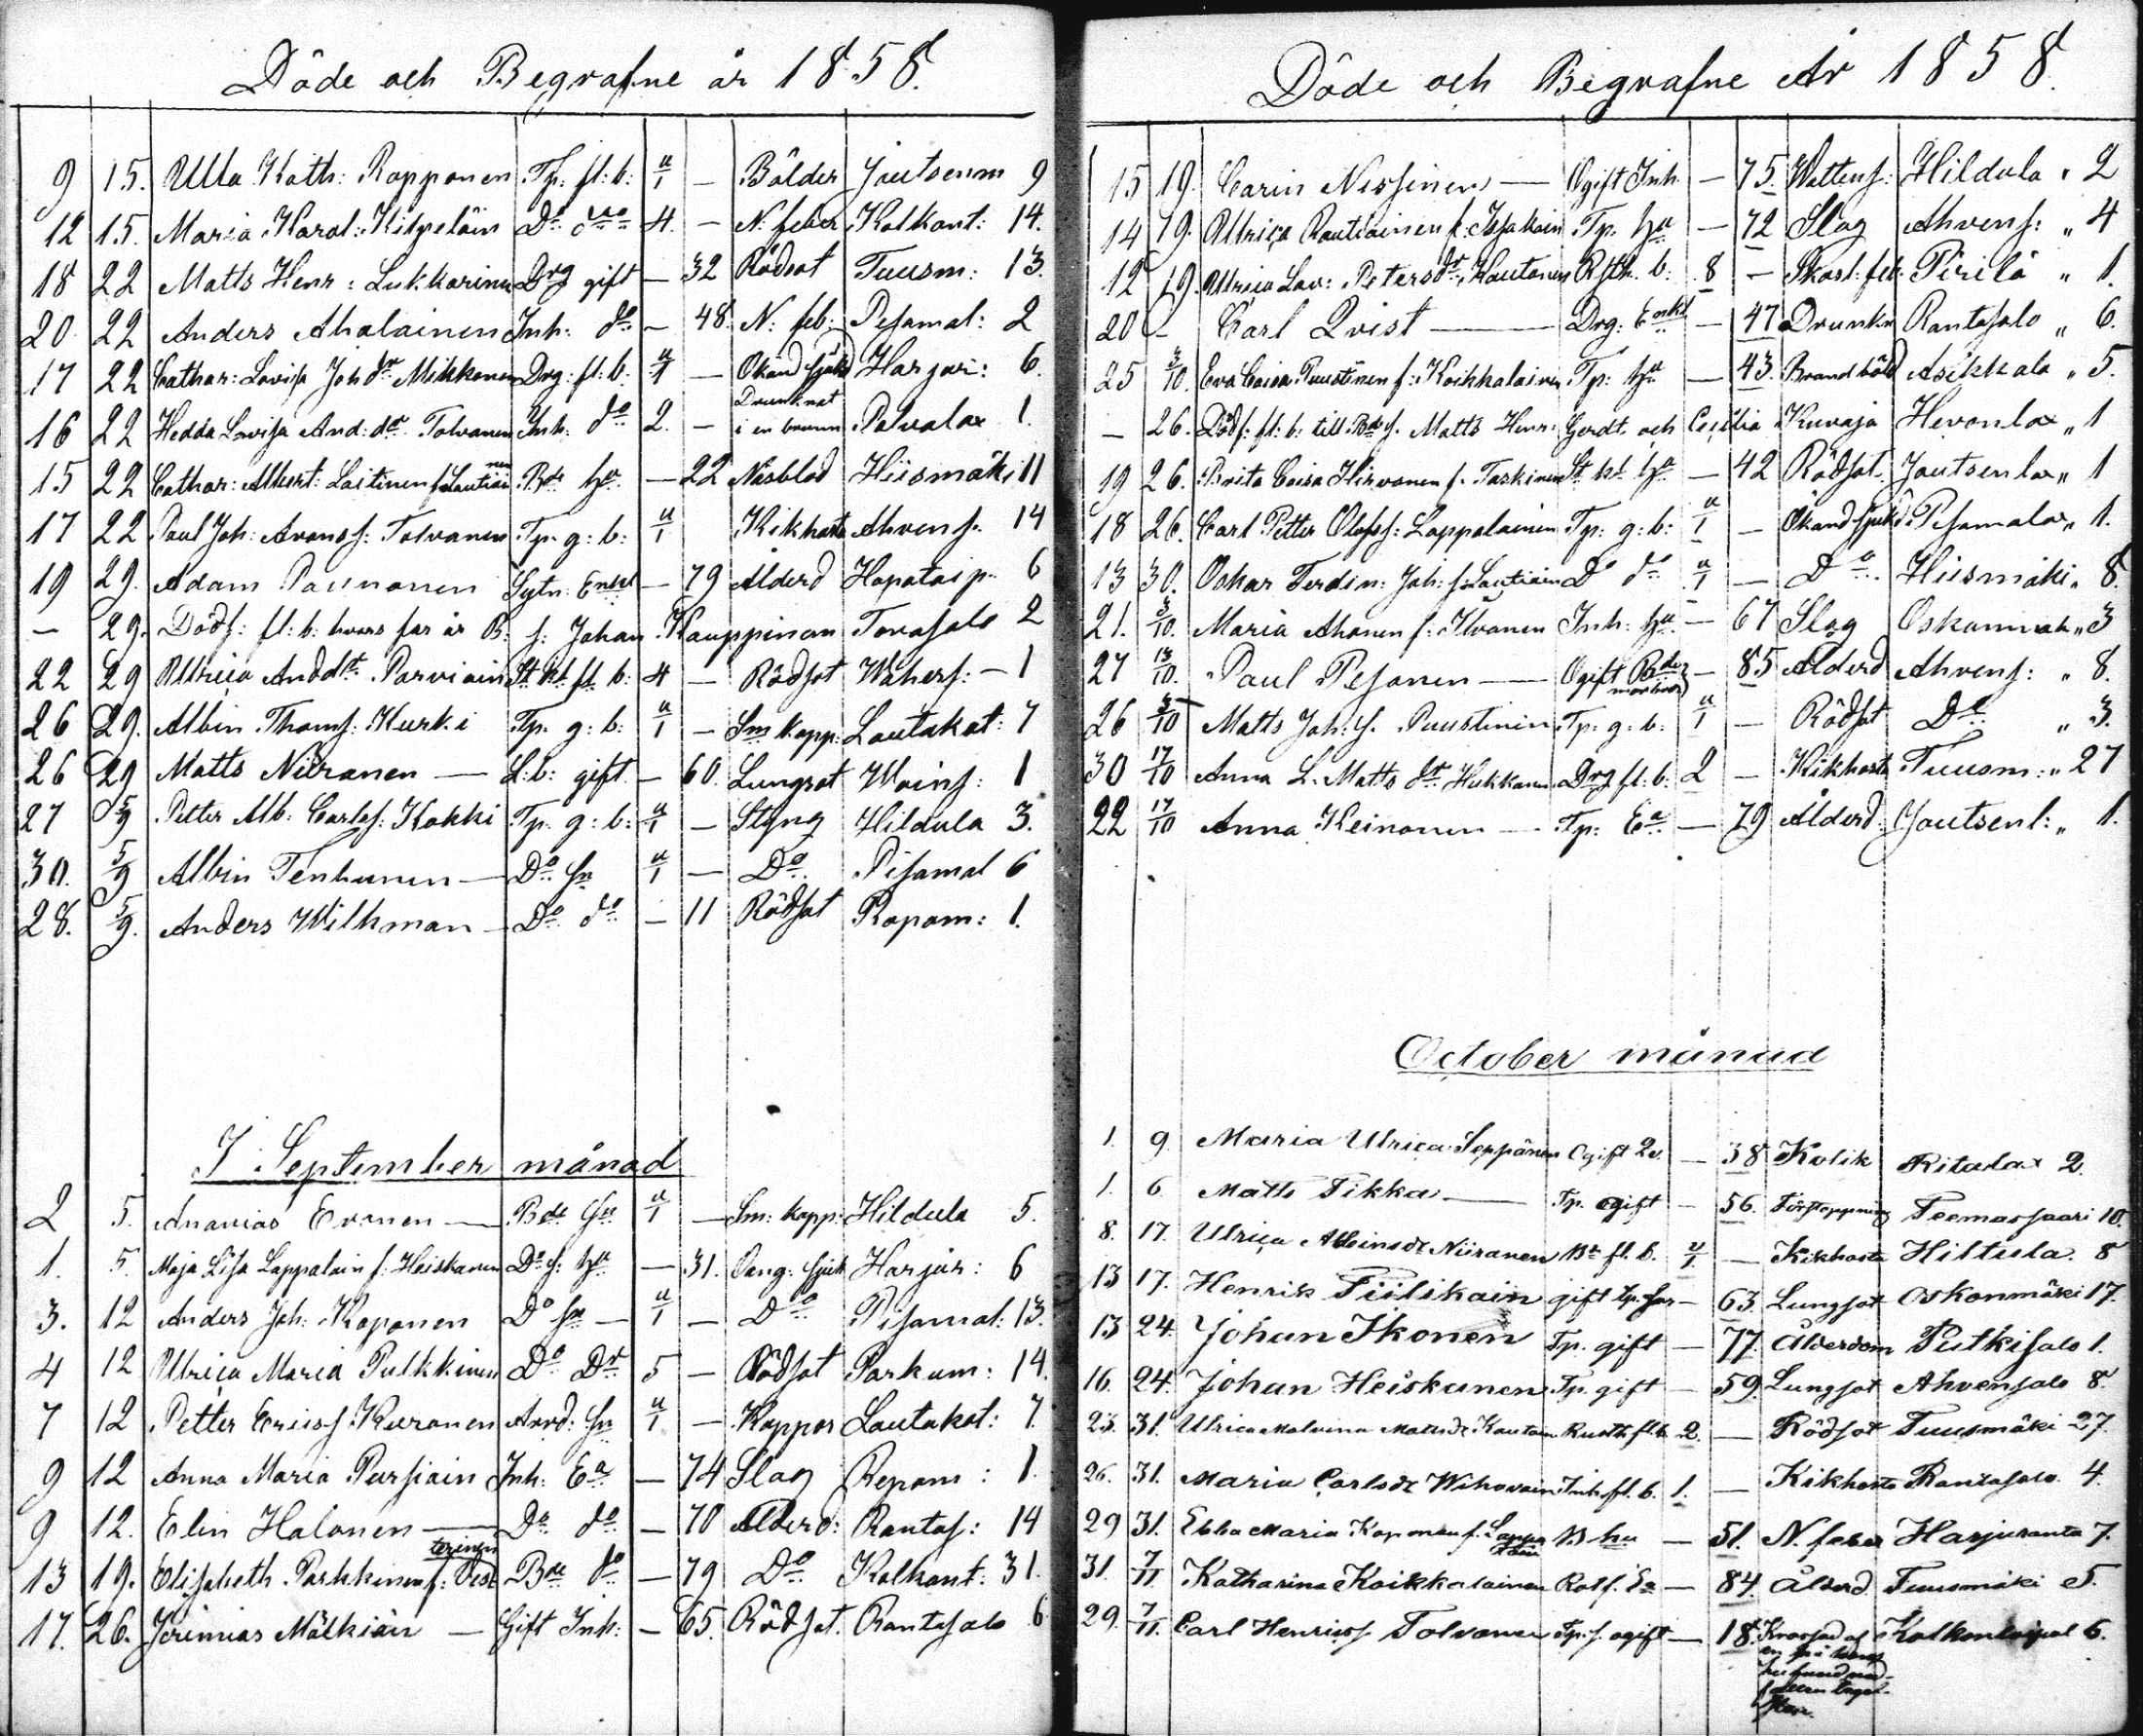 Döde och Begrafne år 1858.
9 15. Ulla Kath: Ropponen Tp: fl: b: u/1 — Bölder Joutsenm 9
12 15. Maria Karol: Kilpeläin Do dito 4. — N. feber Kolkont: 14.
18 22 Matts Henr: Lukkarinen Drg gift — 32 Rödsot Tuusm: 13.
20 22 Anders Aholainen Inh: do — 48. N: feb: Pesamal: 2
17 22 Cathar: Lovisa Joh dr Mikkonen Drg: fl: b. u/1 — Okänd sjukd Harjur: 6.
16 22 Hedda Lovisa And: dr Tolvanen Inh: do 2. — Drunknat i en brunn Polvalax 1.
15 22 Cathar: Albert: Laitinen f. Lautiainen Bde hu — 22 Näsblod Hiismäki 11
17 22 Paul Joh: Aronss: Tolvanen Tp. g: b: u/1 Kikhosta Ahvens. 14
19 29. Adam Paunonen Sytn: Enkl — 79 Ålderd Hapataip. 6
— 29. Dödf: fl: b. hvars far är B: s: Johan Kauppinen Tovasalo 2
22 29 Ulrica Anddr Parviain St kl fl b: 4 — Rödsot Wihers: — 1
26 29. Albin Thoms: Kurki Tp. g: b: u/1 — Sm kopp: Loutakot: 7
26 29 Matts Niiranen — L: b: gift — 60. Lungsot Wains: 1
27 5/9 Petter Alb: Carls: Kokki Tp. g: b: u/1 — Styng Hildula 3.
30. 5/9 Albin Tenhunen — Do sn u/1 — Do Pisamal 6
28. 5/9. Anders Wilkman — Do do — 11 Rödsot Ropom: 1.
I September månad
2 5. Ananias Evonen — Bde sn u/1 — Sm: kopp: Hildula 5.
1. 5. Maja Lisa Lappalain f: Heiskanen Do s: hu — 31. Oang: sjuk Harjur: 6
3. 12 Anders Joh: Koponen Do sn — u/1 — Do Pisamal: 13.
4 12 Ulrica Maria Pulkkinen Do Dr 5 — Rödsot Parkum: 14.
7 12 Petter Ericss Kuronen Arrd: sn u/1 — Koppor Loutakot: 7.
9 12 Anna Maria Pursiain Inh: Ea — 74 Slag Repom: 1.
9 12. Elin Halonen — Do do — 70 Ålderd: Rantas: 14
13 19. Elisabeth Parkkinen f: Vesterinen Bde do — 79 Do Kolkont: 31.
17. 26. Jeremias Mölkiäin — Gift Inh: — 65. Rödsot. Rantasalo 6
Döde och Begrafne År 1858.
15 19. Carin Nissinen — Ogift Inh. — 75 Wattens: Hildula „ 2
14 19. Ulrica Rautiainen f: Issakain Tp. hu — 72 Slag Ahvens: „ 4
12 19. Ulrica Lov: Petersdr Kautonen Rsth. b: 8 — Skarl: feb. Pirilä „ 1.
20 — Carl Qvist — Drg: Enkl — 47 Drunkn Rantasalo „ 6.
25 3/10. Eva Caisa Puustinen f: Koikkalainen Tp: hu — 43. Brandböld Asikkala „ 5.
— 26. Dödf: fl: b: till Bdes. Matts Henr: Gerdt och Cecilia Kuvaja Hevonlax „ 1
19 26. Brita Caisa Hirvonen f. Taskinen St kl hu — 42 Rödsot Joutsenlax „ 1
18 26. Carl Petter Olofss: Lappalainen Tp: g: b: u/1 — Okänd sjukd Pesamalax „ 1.
13 30. Oskar Ferdin: Joh: s: Lautiain Do do u/1 — Do Hiismäki „ 8.
21. 3/10. Maria Ahonen f: Ilvonen Inh: hu — 67 Slag Oskanmäk „ 3
27 13/10. Paul Pesonen — Ogift Bdes morbror — 85 Ålderd Ahvens: „ 8.
26 3/10 Matts Joh: s. Puustinen Tp: g: b: u/1 — Rödsot Do „ 3.
30 17/10 Anna L. Matts dr Hukkanen Drg fl: b: 2 — Kikhosta Tuusm: „ 27
22 17/10 Anna Keinonen — Tp: Ea — 79 Ålderd: Joutsenl: „ 1.
October månad
1. 9. Maria Ulrica Seppänen Ogift — 38 Kolik Ritalax 2.
1. 6. Matts Tikka — Tp. ogift — 56. Förstoppning Teemassaari 10.
8. 17. Ulrica Albinsdr Niiranen Br fl. b. u/1. — Kikhosta Hiltula. 8
13 17. Henrik Piilikäin gift — 63. Lungsot Oskonmäki 17.
13 24. Johan Ikonen Tp. gift — 77. Ålderdom Putkisalo 1.
16. 24. Johan Heiskanen Tp. gift — 59. Lungsot Ahvensalo 8.
23. 31. Ulrica Malvina Matsdr Kautoin Rusth. fl. b. 2. — Rödsot Tuusmäki 27.
26. 31. Maria Carlsdr Wihavain Inh. fl. b. 1. — Kikhosta Rantasalo. 4.
29 31. Ebba Maria Koponen f. B. hu — 51. N. feber Harjuranta 7.
31. 7/11. Katharina Koikkalainen — 84. Ålderd. Tuusmäki 5.
29. 7/11. Carl Henrics Tolvanen Tp. s. ogift — 18. Krossad af Kolkontaipal 6.